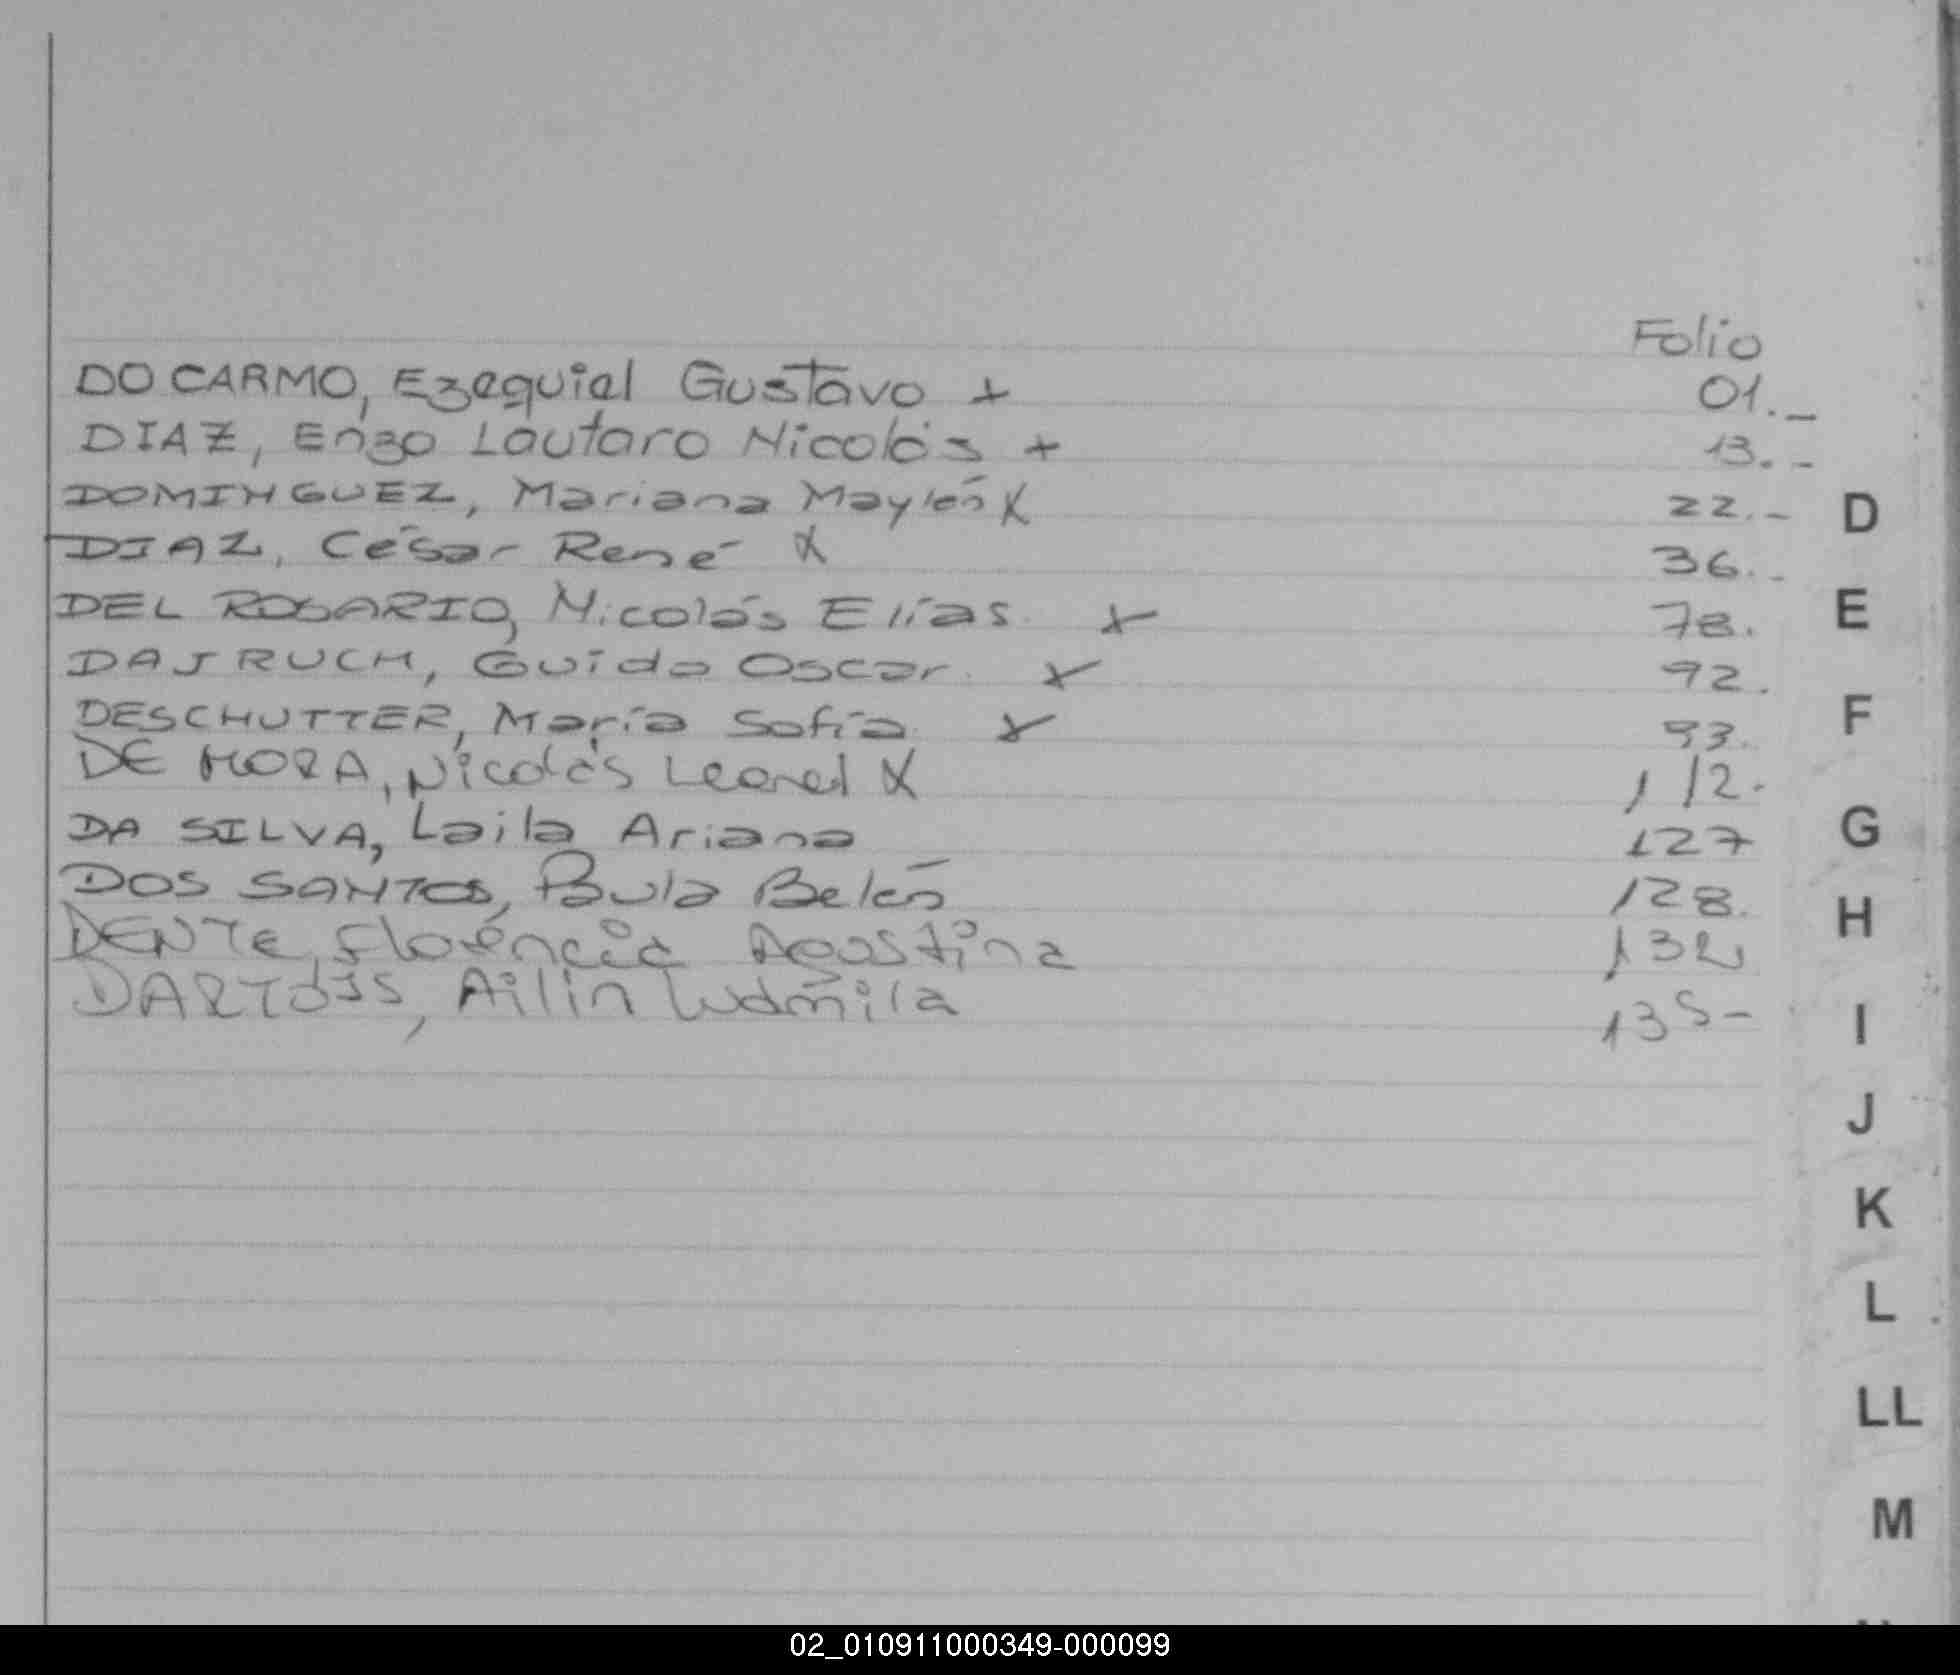 Folio
DO CARMO, Ezequiel Gustavo + 01._
DIAZ, Enzo Lautaro Nicolás + 13.-
DOMINGUEZ, Mariana Maylén X 22.-
DIAZ, César René X 36.-
DEL ROSARIO, Nicolás Elías. X 78.
DAJRUCH, Guido Oscar. X 92.
DESCHUTTER, María Sofía. X 93.
DE MORA, Nicolás Leonel X 112.
DA SILVA, Laila Ariana 127
DOS SANTOS, Paula Belén 128.
DENTE, Florencia Agostina 132
DARTOIS, Ailin Ludmila 135-
D
E
F
G
H
I
J
K
L
LL
M
02_010911000349-000099